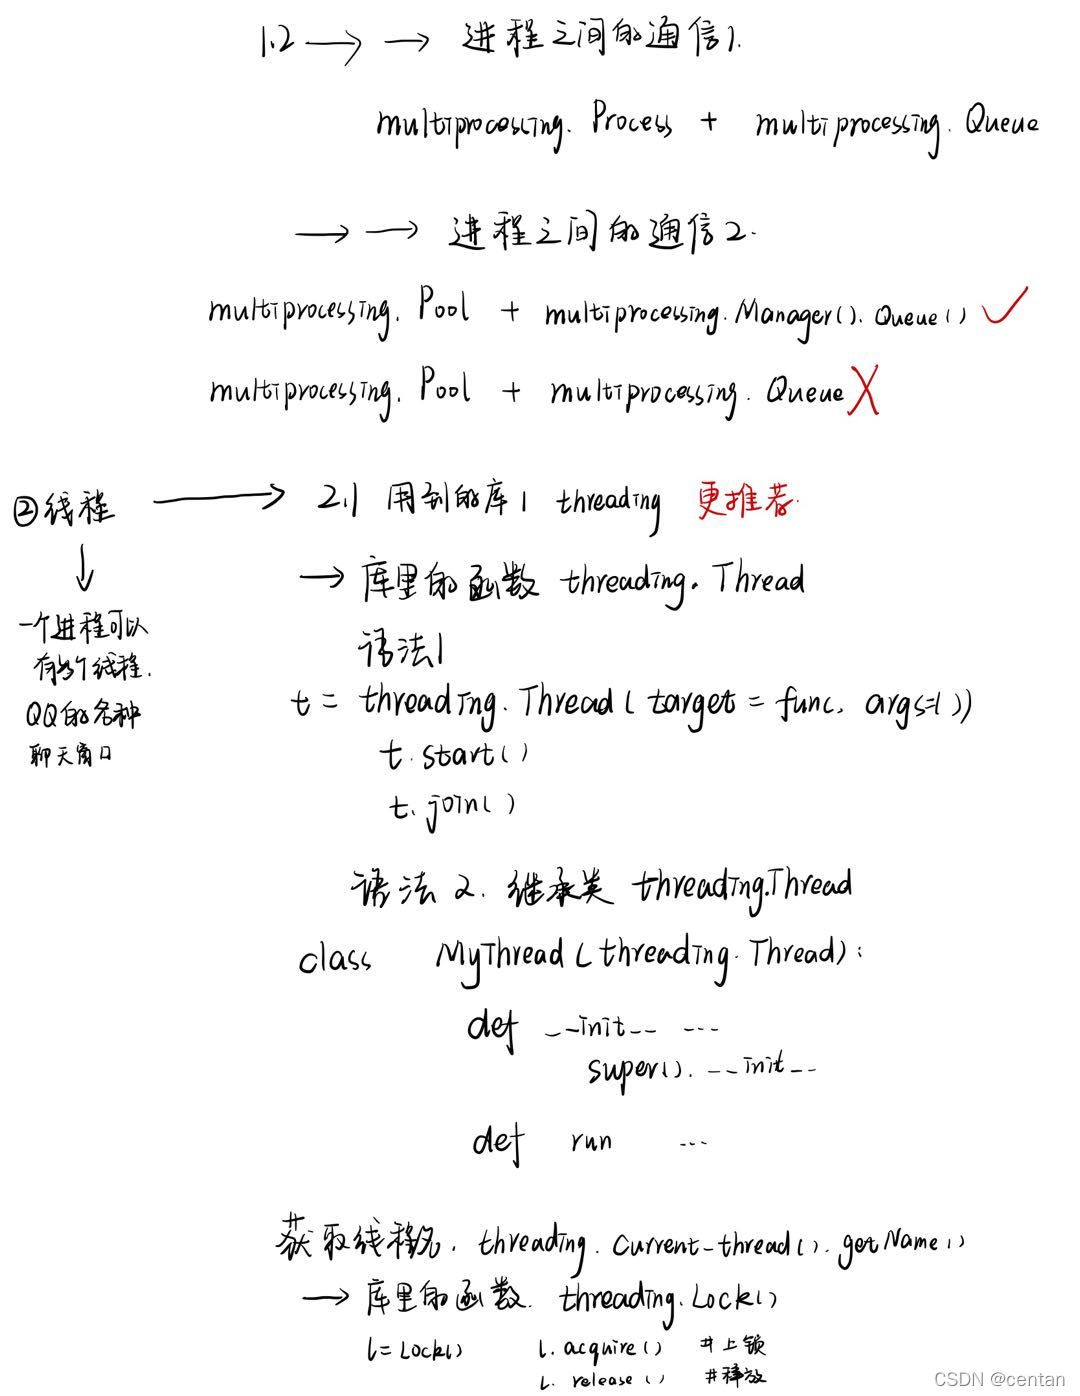 1.2 → → 进程之间的通信1.
multiprocessing. Process + multiprocessing. Queue
→ → 进程之间的通信2.
multiprocessing. Pool + multiprocessing.Manager(). Queue() ✓
multiprocessing. Pool + multiprocessing. Queue X
②线程 → 2.1 用到的库1 threading 更推荐.
→ 库里的函数 threading. Thread
一个进程可以
有多个线程.
QQ的各种
聊天窗口
语法1
t = threading. Thread ( target = func, args=( ))
t. start()
t. join()
语法2. 继承类 threading.Thread
class MyThread ( threading. Thread):
def __init__ ...
super(). __init__
def run ...
获取线程名. threading. current_thread(). getName()
→ 库里的函数. threading. Lock()
l = Lock() l. acquire() #上锁
l. release() #释放
CSDN @centan